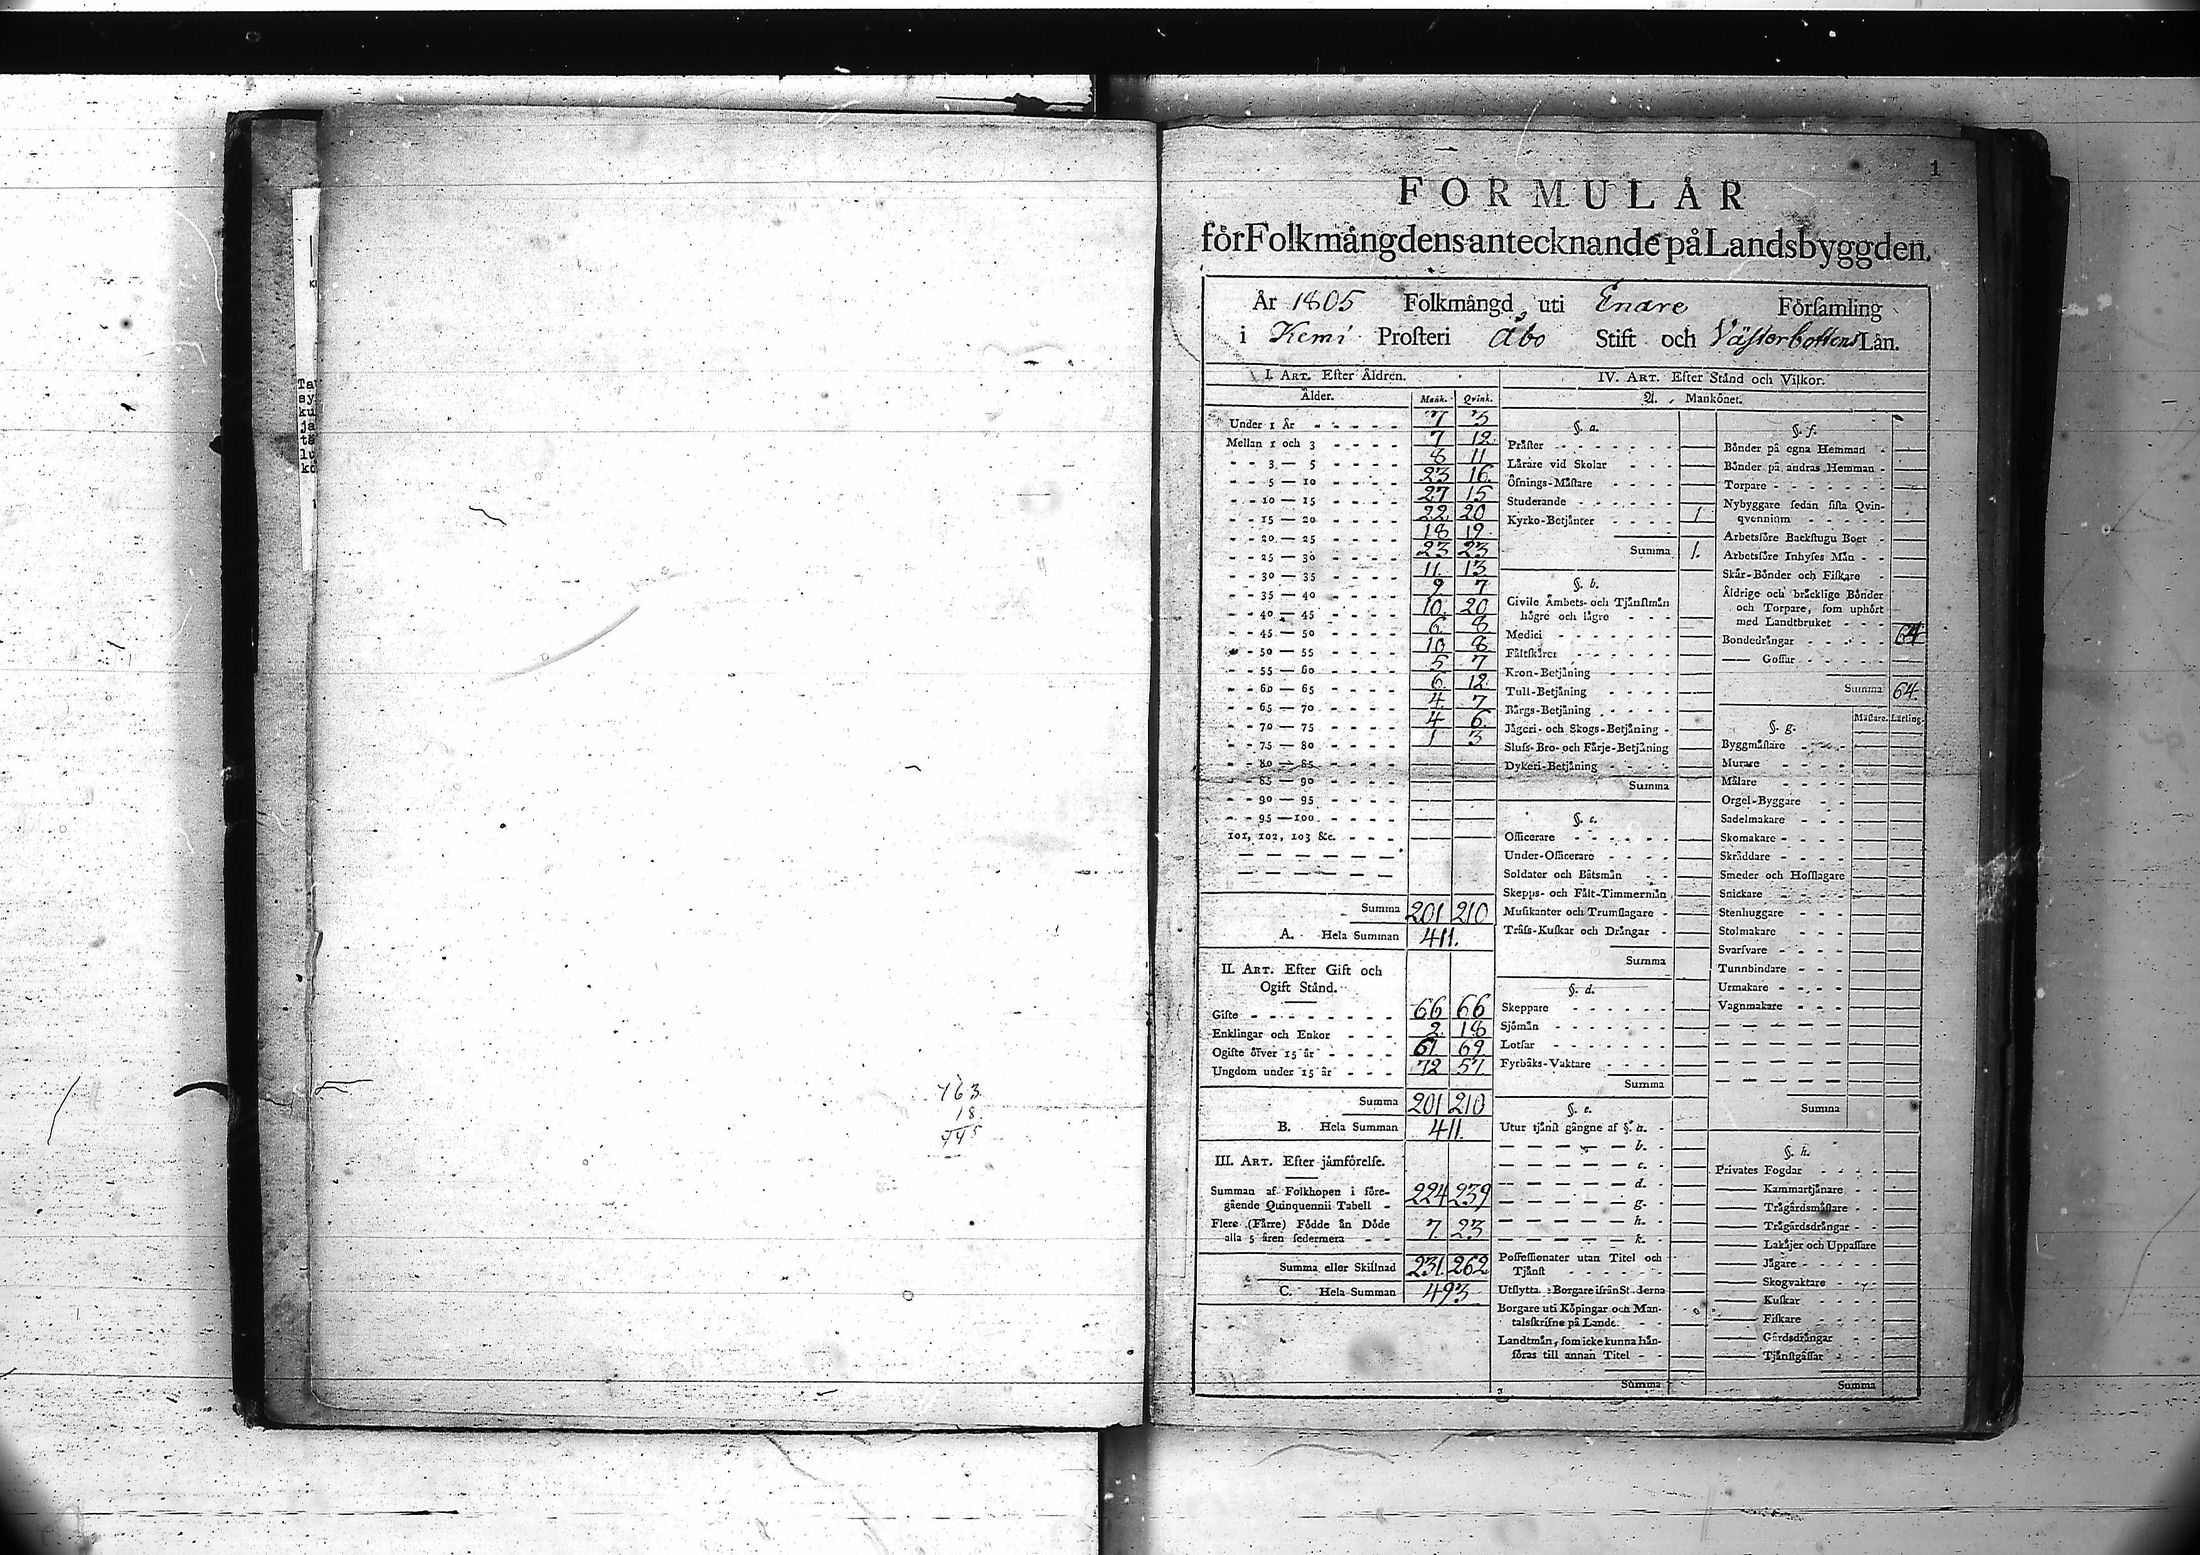 763
18
445
1
FORMULÅR
för Folkmångdens antecknande på Landsbyggden.
År 1805 Folkmångd uti Enare Förſamling
i Kemi Proſteri Åbo Stift och Våsterbottens Lån.
I. ART. Efter Åldren.
Ålder. Mank. Qvink.
Under 1 År 7 3
Mellan 1 och 3 7 12
3 — 5 8 11
5 — 10 23 16
10 — 15 27 15
15 — 20 22 20
20 — 25 18 19
25 — 30 23 23
30 — 35 11 13
35 — 40 9 7
40 — 45 10 20
45 — 50 6 8
50 — 55 10 8
55 — 60 5 7
60 — 65 6 12
65 — 70 4 7
70 — 75 4 6
75 — 80 1 3
80 — 85
85 — 90
90 — 95
95 — 100
101, 102, 103 &c.
Summa 201 210
A. Hela Summan 411.
II. ART. Efter Gift och
Ogift Stånd.
Gifte 66 66
Enklingar och Enkor 2 18
Ogifte öfver 15 år 61 69
Ungdom under 15 år 72 57
Summa 201 210
B. Hela Summan 411.
III. ART. Efter jåmförelſe.
Summan af Folkhopen i före-
gående Quinquennii Tabell 224 239
Flere (Fårre) Födde ån Döde
alla 5 åren ſedermera 7. 23
Summa eller Skillnad 231 262
C. Hela Summan 493
IV. ART. Efter Stånd och Vilkor.
A. Mankönet.
§. a.
Pråſter
Lårare vid Skolar
Öfnings-Måſtare
Studerande
Kyrko-Betjånter 1
Summa 1.
§. b.
Civile Åmbets- och Tjånſtmån
högre och lågre
Medici
Fåltſkårer
Kron-Betjåning
Tull-Betjåning
Bårgs-Betjåning
Jågeri- och Skogs-Betjåning
Sluſs-Bro- och Fårje-Betjåning
Dykeri-Betjåning
Summa
§. c.
Officerare
Under-Officerare
Soldater och Båtsmån
Skepps- och Fålt-Timmermån
Muſikanter och Trumſlagare
Tråſs-Kuſkar och Drångar
Summa
§. d.
Skeppare
Sjömån
Lotſar
Fyrbåks-Vaktare
Summa
§. e.
Utur tjånſt gångne af §. a.
b.
c.
d.
g.
h.
k.
Poſſeſſionater utan Titel och
Tjånſt
Utflytta Borgare ifrån St derna
Borgare uti Köpingar och Man-
talsſkrifne på Landet
Landtmån, ſom icke kunna hån-
föras till annan Titel
Summa
§. f.
Bönder på egna Hemman
Bönder på andras Hemman
Torpare
Nybyggare ſedan ſiſta Qvin-
qvennium
Arbetsföre Backſtugu Boer
Arbetsföre Inhyſes Mån
Skår-Bönder och Fiſkare
Åldrige och bråcklige Bönder
och Torpare, ſom uphört
med Landtbruket
Bondedrångar 64
—— Goſſar
Summa 64.
§. g. Måſtare. Lårling.
Byggmåſtare
Murare
Målare
Orgel-Byggare
Sadelmakare
Skomakare
Skråddare
Smeder och Hofſlagare
Snickare
Stenhuggare
Stolmakare
Svarfvare
Tunnbindare
Urmakare
Vagnmakare
Summa
§. h.
Privates Fogdar
—— Kammartjånare
—— Trågårdsmåſtare
—— Trågårdsdrångar
—— Lakåjer och Uppaſſare
—— Jågare
—— Skogvaktare
—— Kuſkar
—— Fiſkare
—— Gårdsdrångar
—— Tjånſtgåſſar
Summa